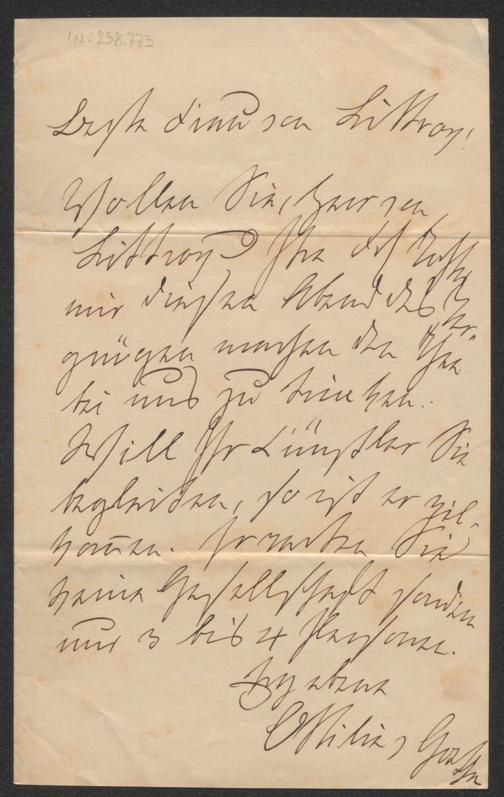 IN: 238.773
Beste Frau von Littrow!
Wollen Sie, Herr von
Littrow u Ihre
mir diesen Abend das Ver-
gnügen machen den Thee
bei uns zu trinken.
Will Ihr Künstler Sie
begleiten, so ist er will-
kommen. Erwarten Sie
keine Gesellschaft sondern
nur 3 bis 4 Personen.
Ergebene
Ottilie v Goethe